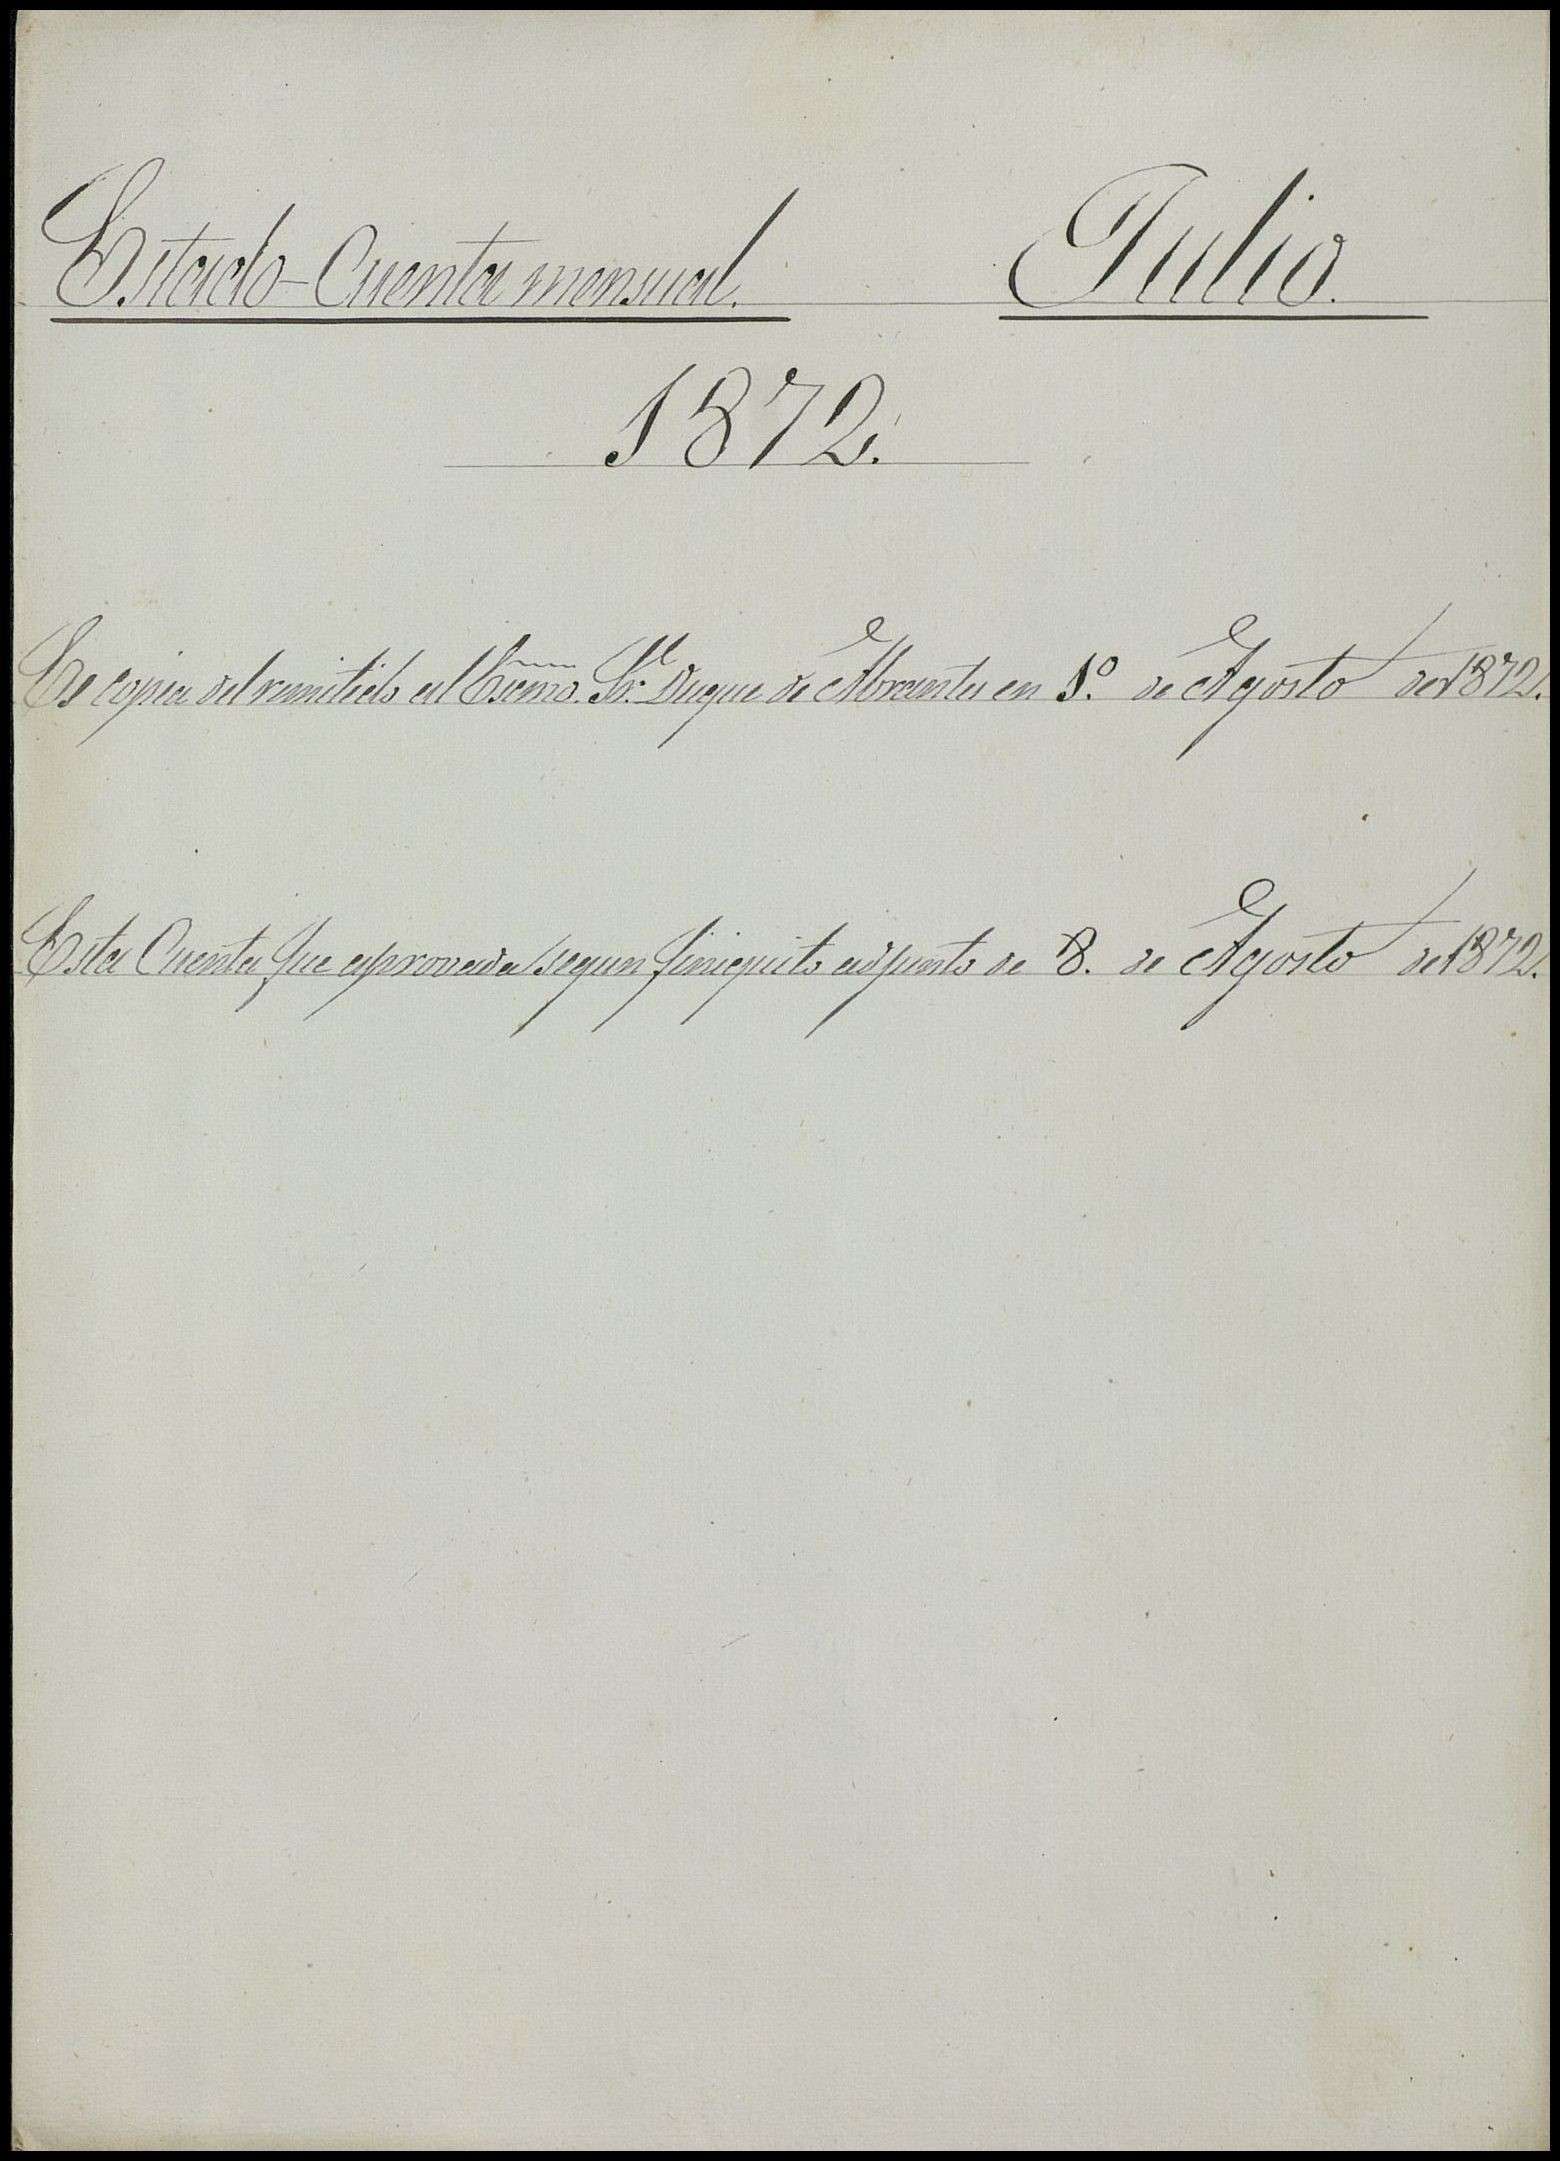 Estado-Cuenta mensual. Julio.
1872.
Es copia del remitido al Excmo. Sr. Duque de Abrantes en 1º. de Agosto de 1872.
Esta Cuenta fue aprovada segun finiquito adjunto de 8. de Agosto de 1872.